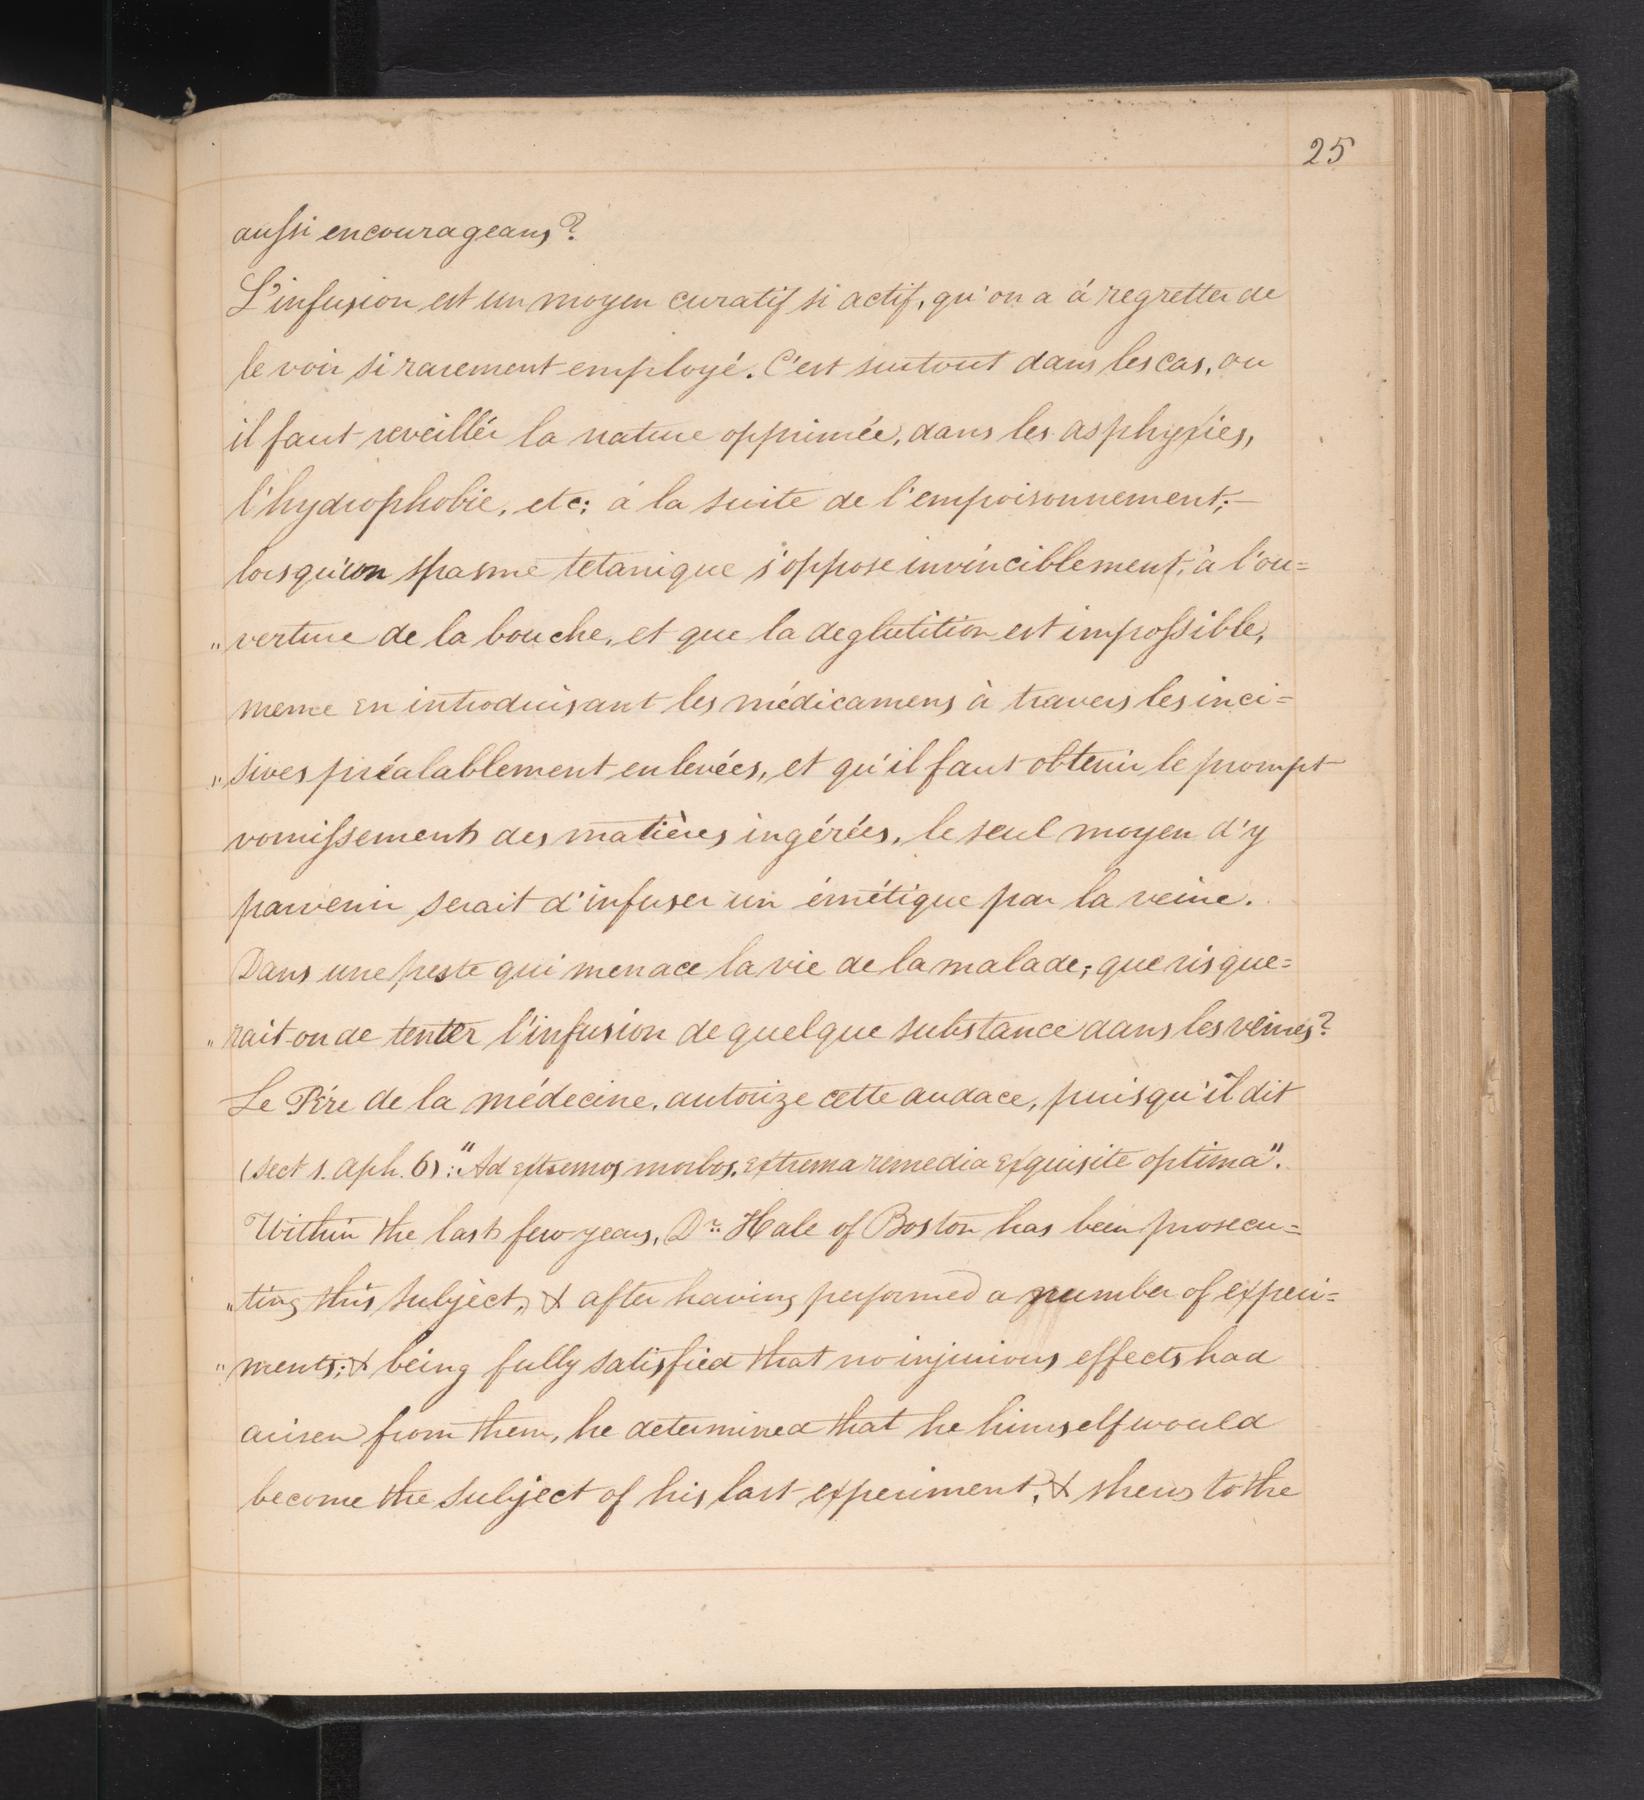 25
aussi encourageans?
L'infusion est un moyen curatif si actif, qu'on a à regretter de
le voir si rarement employé. C'est surtout dans les cas, ou
il faut reveillér la nature opprimée, dans les asphyxies,
l'hydrophobie, etc; à la suite de l'empoisonnement;—
lorsqu'un spasme tetanique s'oppose invinciblement, à l'ou=
„verture de la bouche, et que la deglutition est impossible,
meme en introduisant les médicamens à travers les inci=
„sives préalablement enlevées, et qu'il faut obtenir le prompt
vomissements des matières ingérées, le seul moyen d'y
parvenir serait d'infuser un émétique par la veine.
Dans une peste qui menace la vie de la malade, que risque=
„rait-on de tenter l'infusion de quelque substance dans les veines?
Le Pére de la médecine, autorize cette audace, puisqu'il dit
(sect 1. aph. 6): "Ad extremos morbos, extrema remedia exquisite optima".
Within the last few years, Dr. Hale of Boston has been prosecu=
„ting this subject, & after having performed a number of experi=
„ments; & being fully satisfied that no injurious effects had
arisen from them, he determined that he himself would
become the subject of his last experiment, & shews to the